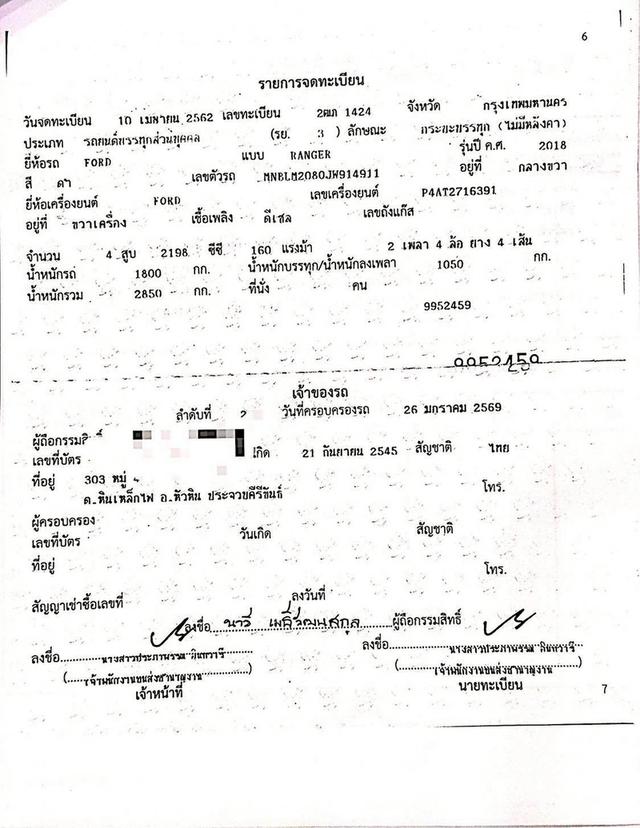 6
รายการจดทะเบียน
วันจดทะเบียน 10 เมษายน 2562 เลขทะเบียน 2ฒภ 1424 จังหวัด กรุงเทพมหานคร
ประเภท รถยนต์บรรทุกส่วนบุคคล (รย. 3 ) ลักษณะ กระบะบรรทุก (ไม่มีหลังคา)
ยี่ห้อรถ FORD แบบ RANGER รุ่นปี ค.ศ. 2018
สี ดำ เลขตัวรถ MNBLM2080JW914911 อยู่ที่ กลางขวา
ยี่ห้อเครื่องยนต์ FORD เลขเครื่องยนต์ P4AT2716391
อยู่ที่ ขวาเครื่อง เชื้อเพลิง ดีเซล เลขถังแก๊ส
จำนวน 4 สูบ 2198 ซีซี. 160 แรงม้า 2 เพลา 4 ล้อ ยาง 4 เส้น
น้ำหนักรถ 1800 กก. น้ำหนักบรรทุก/น้ำหนักลงเพลา 1050 กก.
น้ำหนักรวม 2850 กก. ที่นั่ง คน
9952459
เจ้าของรถ
ลำดับที่ 2 วันที่ครอบครองรถ 26 มกราคม 2569
ผู้ถือกรรมสิทธิ์
เลขที่บัตร เกิด 21 กันยายน 2545 สัญชาติ ไทย
ที่อยู่ 303 หมู่
ต.หินเหล็กไฟ อ.หัวหิน ประจวบคีรีขันธ์ โทร.
ผู้ครอบครอง
เลขที่บัตร วันเกิด สัญชาติ
ที่อยู่
โทร.
สัญญาเช่าซื้อเลขที่ ลงวันที่
ลงชื่อ ผู้ถือกรรมสิทธิ์
ลงชื่อ ลงชื่อ
(เจ้าพนักงานขนส่งชำนาญงาน) (เจ้าพนักงานขนส่งชำนาญงาน)
เจ้าหน้าที่ นายทะเบียน
7